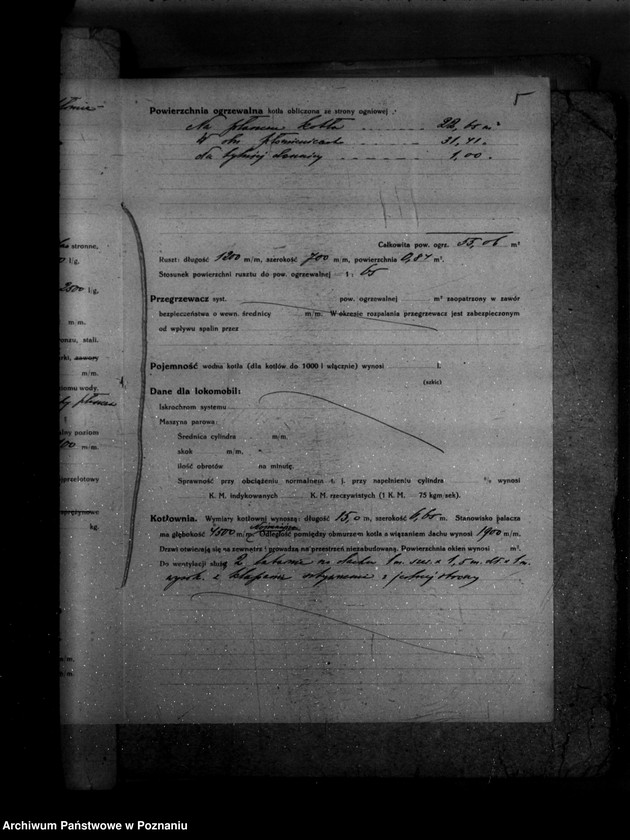 5
Powierzchnia ogrzewalna kotła obliczona ze strony ogniowej:
Na kotła 22,65 m²
W 31,41 "
1,00 "
Całkowita pow. ogrz. 55,06 m²
Ruszt: długość 1200 m/m, szerokość 700 m/m, powierzchnia 0,84 m².
Stosunek powierzchni rusztu do pow. ogrzewalnej 1 : 65
Przegrzewacz syst. pow. ogrzewalnej m² zaopatrzony w zawór
bezpieczeństwa o wewn. średnicy m/m. W okresie rozpalania przegrzewacz jest zabezpieczonym
od wpływu spalin przez
Pojemność wodna kotła (dla kotłów do 1000 l włącznie) wynosi l.
(szkic)
Dane dla lokomobil:
Iskrochron systemu
Maszyna parowa:
Średnica cylindra m/m.
skok m/m,
ilość obrotów na minutę.
Sprawność przy obciążeniu normalnem t. j. przy napełnieniu cylindra % wynosi
K. M. indykowanych K. M. rzeczywistych (1 K. M. = 75 kgm/sek).
Kotłownia. Wymiary kotłowni wynoszą: długość 15,0 m, szerokość 6,65 m. Stanowisko palacza
ma głębokość 4500 m/m. Odległość pomiędzy obmurzem kotła a wiązaniem dachu wynosi 1900 m/m.
Drzwi otwierają się na zewnątrz i prowadzą na przestrzeń niezabudowaną. Powierzchnia okien wynosi m².
Do wentylacji służą 2 latarnie na dachu 1 m szer. x 1,5 m dł. x 1 m.
wysok. z klapami z jednej strony
stronne,
l/g.
2500 l/g,
m/m.
stali.
zawory
m/m.
wody.
poziom
m/m.
kg.
m/m.
m/m.
Archiwum Państwowe w Poznaniu